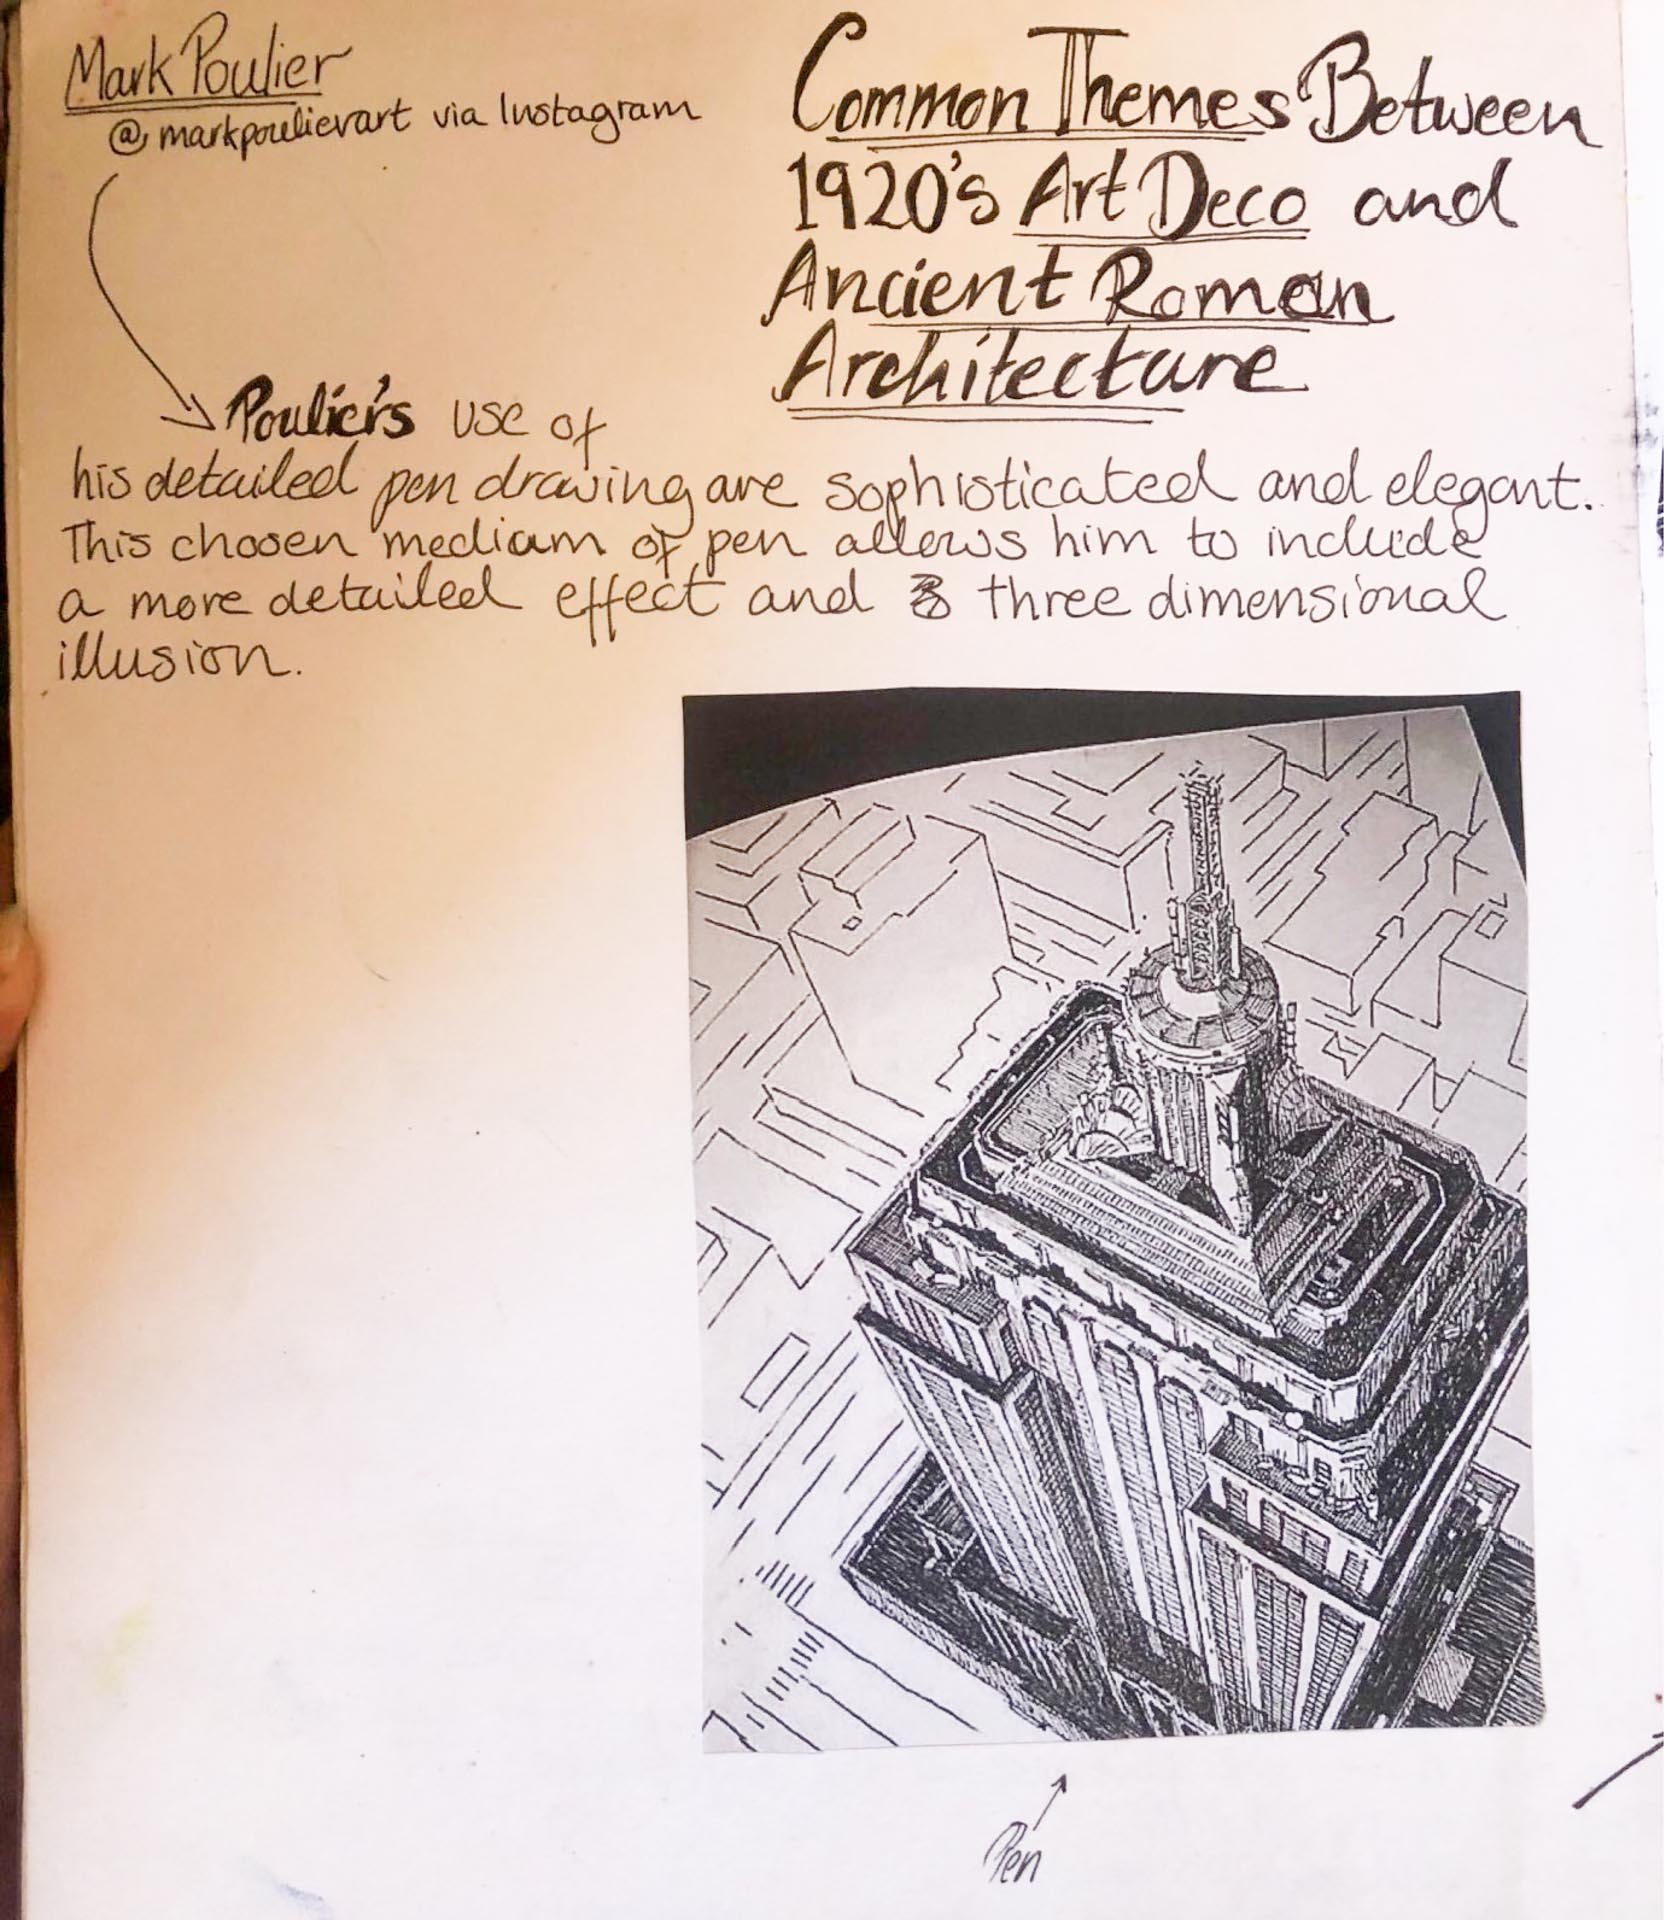 Mark Poulier
@markpoulierart via Instagram
Common Themes Between
1920's Art Deco and
Ancient Roman
Architecture
Poulier's use of
his detailed pen drawing are sophisticated and elegant.
This chosen medium of pen allows him to include
a more detailed effect and three dimensional
illusion.
Pen